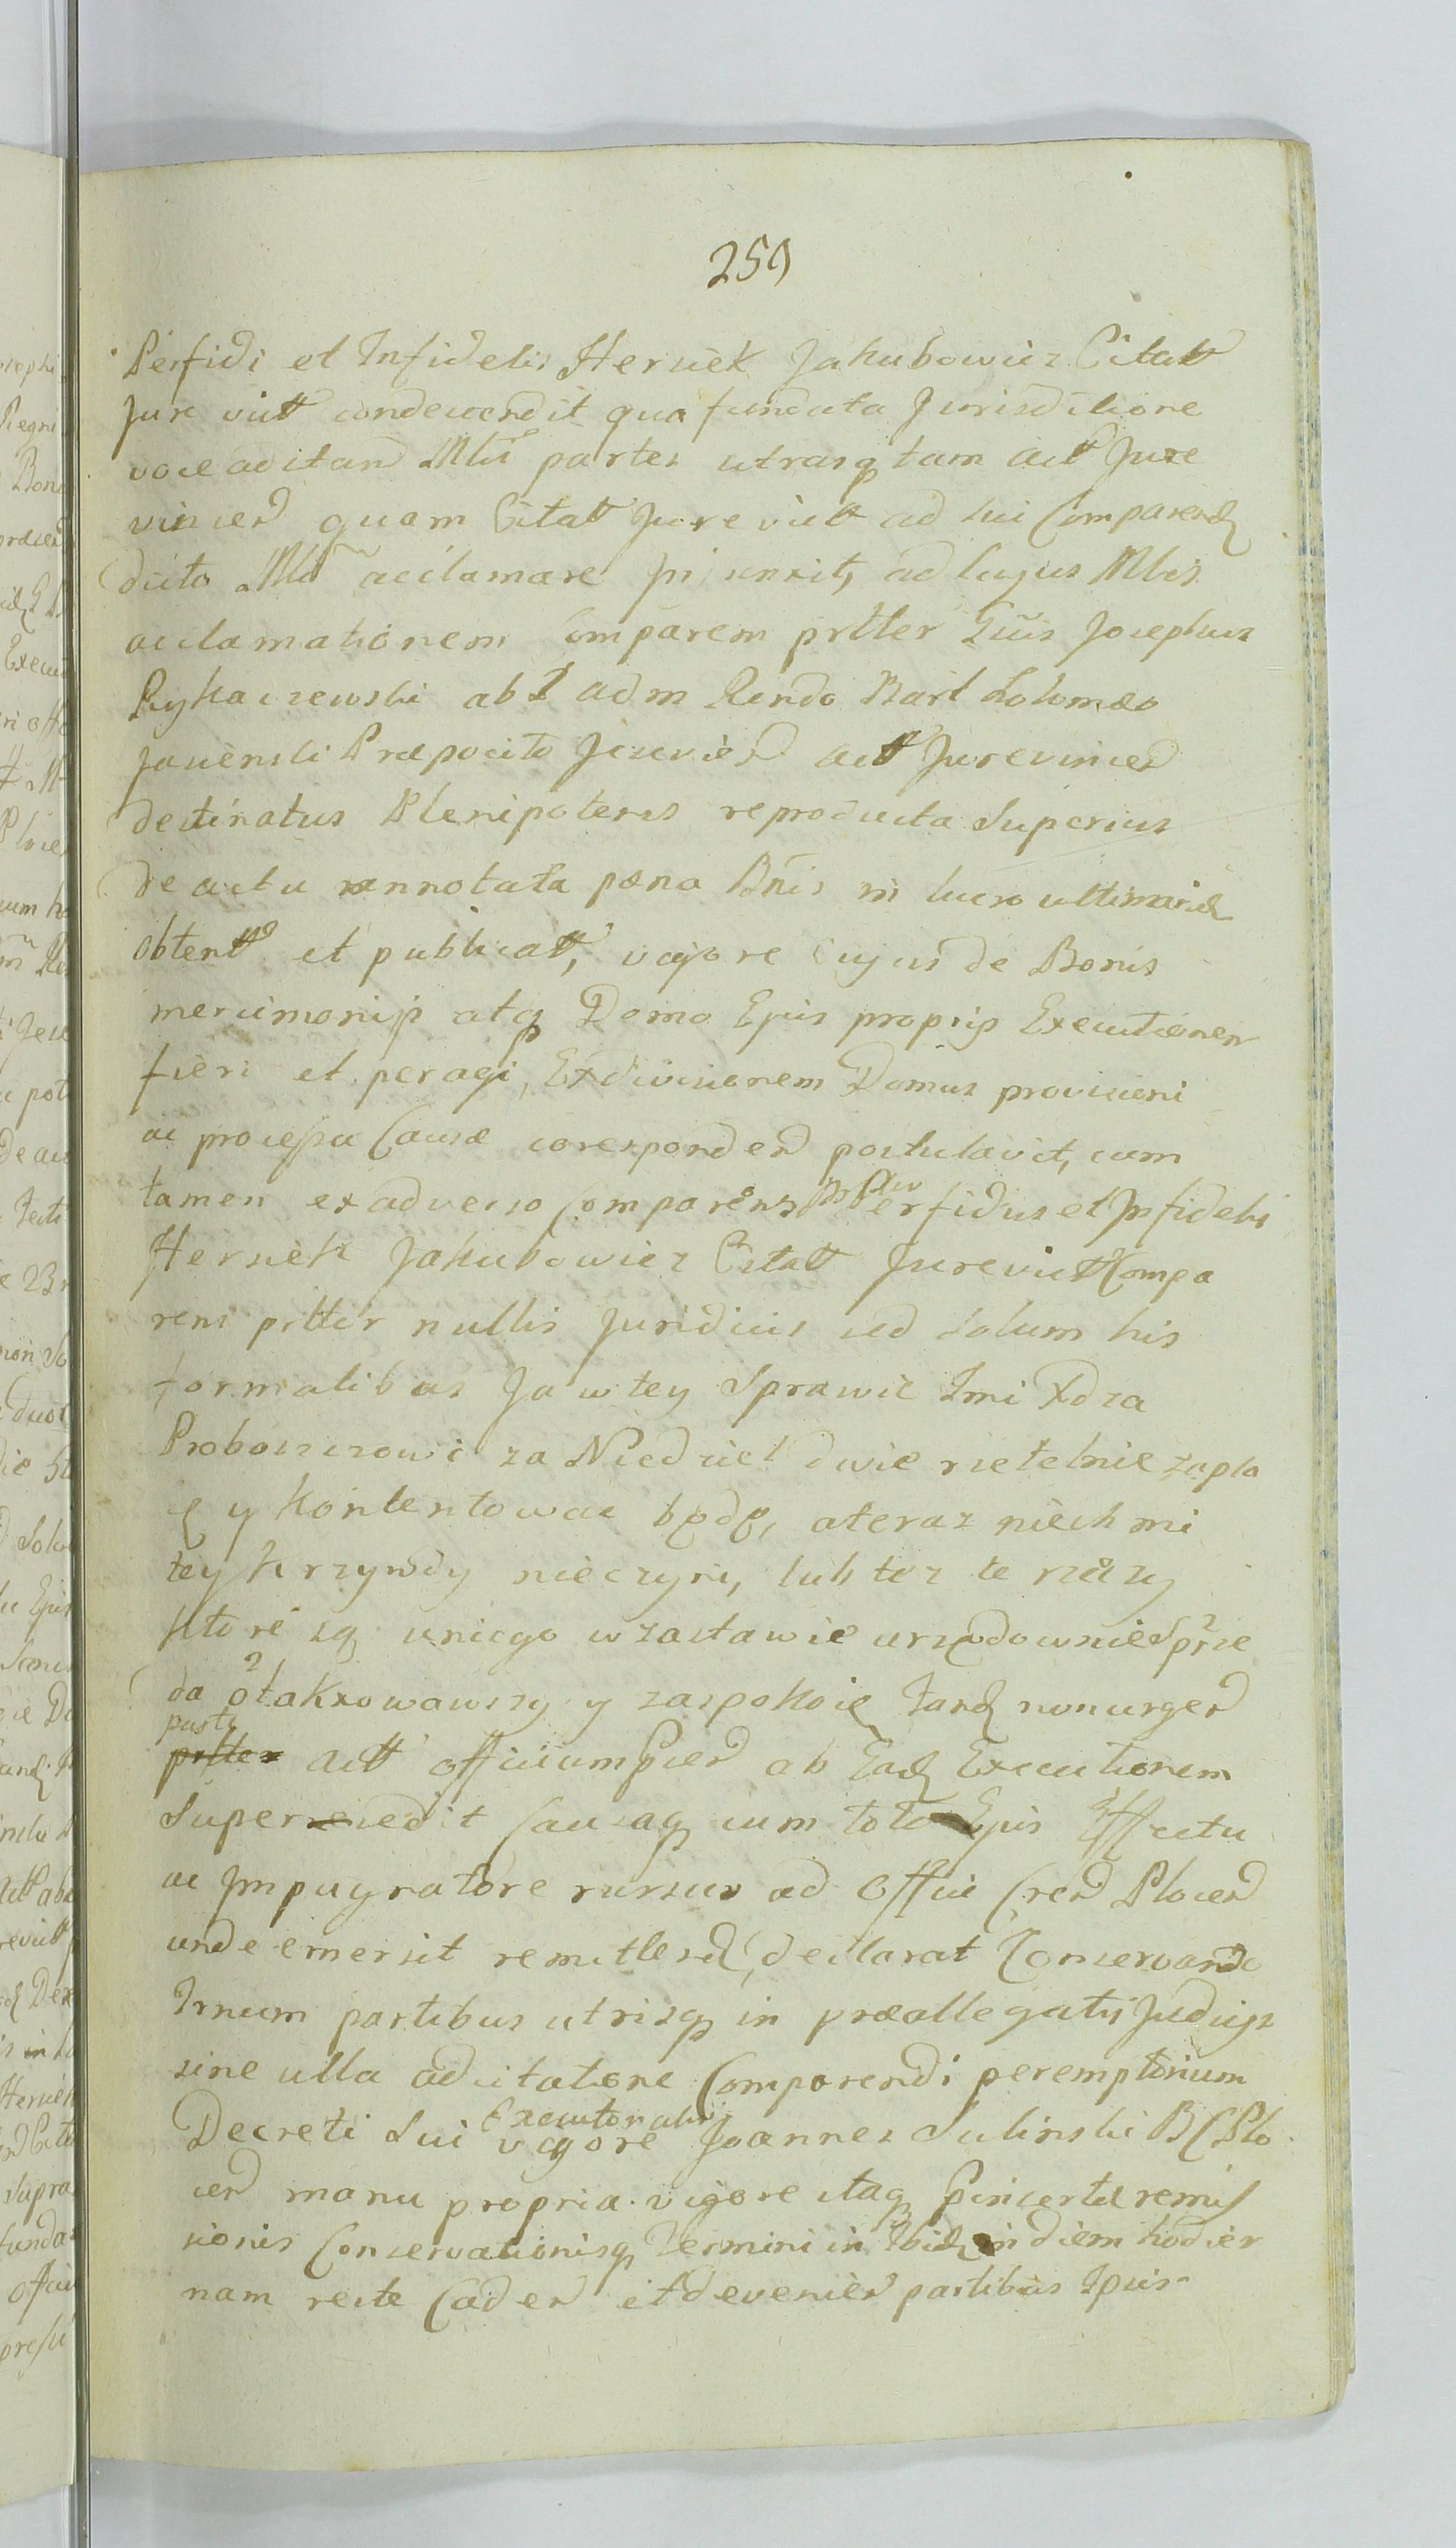 259
Perfidi et Infidelis Herszek Jakubowicz Citatt
Jure vict condescendit qua fundata Jurisdictione
voce ad itan Mlri partes utrasq tam actt Jure
vincen quam Citatt Jure vict ad sui Comparend
dicto Mlo acclamare injunxit, ad cujus Mlis
acclamationem Comparem prltter Gnus Josephus
Rykaczewski ab adm Rendo Bartholomæo
Jasienski Præposito Jezovien actt Jurevincen
destinatus Plenipotens reproducta Superius
de actu annotata pæna Bnis in lucro ultimarie
obtentt et publicatt, vigore cujus de Bonis
mercimonijs atq Domo Ejus proprijs Executionem
fieri et peragi, Exdivisionem Domus provisioni
ac processu Causæ corresponden postulavit, cum
tamen exadverso Comparens Perfidus et Infidelis
Herszek Jakubowicz Citatt Jurevictt Compa
rens prltter nullis Juridicis sed solum his
formalibus Ja w tey Sprawie Imi Xdza
Proboszczowi za Niedziel dwie rzetelnie zapła
cę y kontentowac będę, a teraz niech mi
tey krzywdy nieczyni, lub też te rzeczy
ktore są uniego w zastawie urzędownie Sprze
da otaxowawszy y zaspokoię Tand nonurgen
parte
prltter actt officium Pien ab Ead Executionem
Supersedit Causaq cum toto Ejus Effectu
ac Impugnatore rursus ad Offici Cren Plocen
unde emersit remittend, declarat Conservando
Trnum partibus utrisq in præallegatis Judicijs
sine ulla adcitatione Comparendi peremptorium
Decreti Sui Executorialis vigore Joannes Sulinski B C Plo
cen manu propria. vigore itaq Pinsertæ remis
sionis Conservationisq Termini in Ibid in diem hodier
nam recte Caden et devenien partibus Ipsis